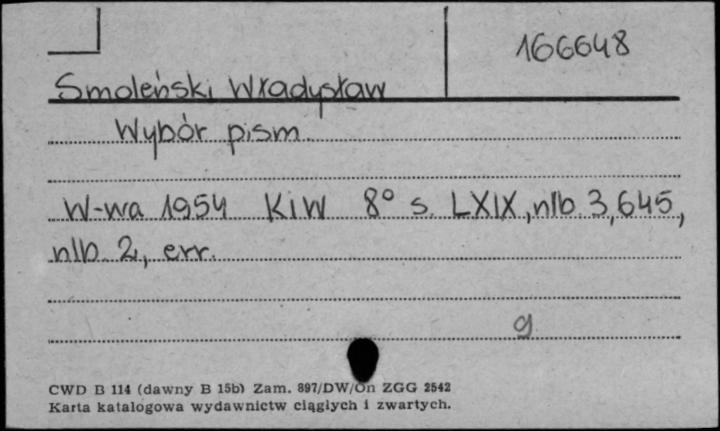 166648
Smoleński Władysław
Wybór pism.
W-wa 1954 KiW 8° s. LXIX, nlb. 3, 645,
nlb. 2, err.
g
CWD B 114 (dawny B 15b) Zam. 897/DW/On ZGG 2542
Karta katalogowa wydawnictw ciągłych i zwartych.